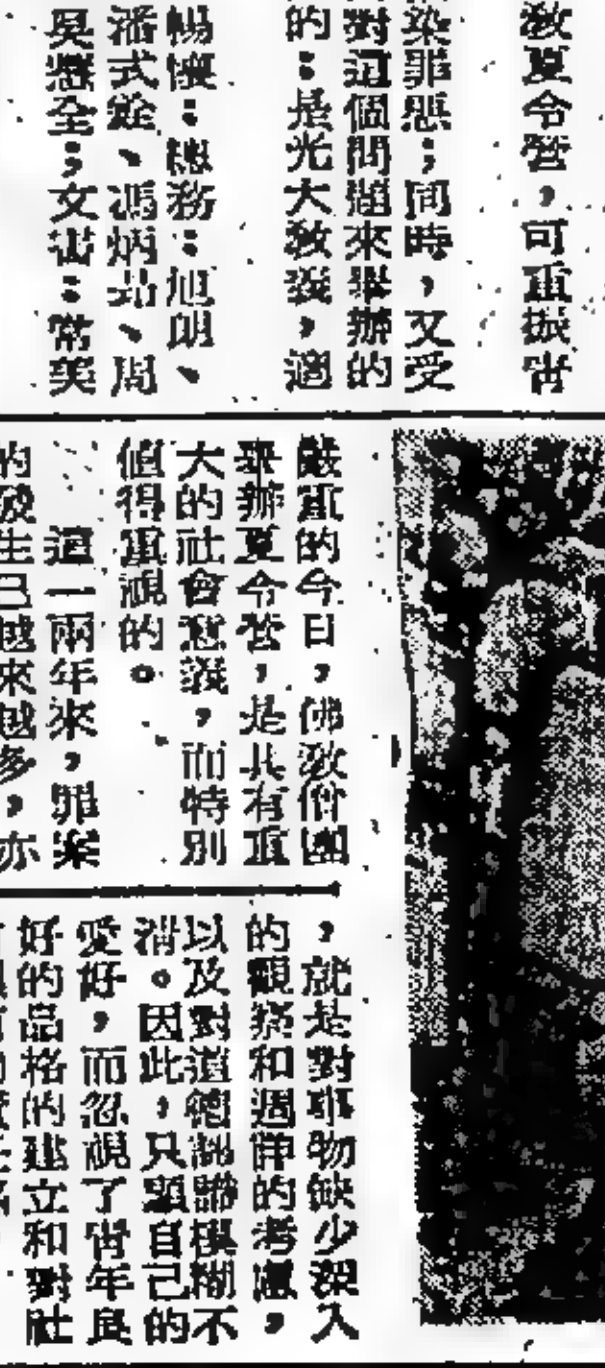 教夏令營，可重振青
染罪惡；同時，又受
對這個問題來舉辦的
的：是光大教義，適
暢懷：總務：旭朗、
潘式銓、馮炳 、周
吳 全；文書：常美
嚴重的今日，佛教僧團
舉辦夏令營，是具有重
大的社會意義，而特別
值得重視的。
這一兩年來，罪案
的發生已越來越多，亦
，就是對事物缺少深入
的觀察和週詳的考慮，
以及對道德認識模糊不
清。因此，只顧自己的
愛好，而忽視了青年良
好的品格的建立和對社